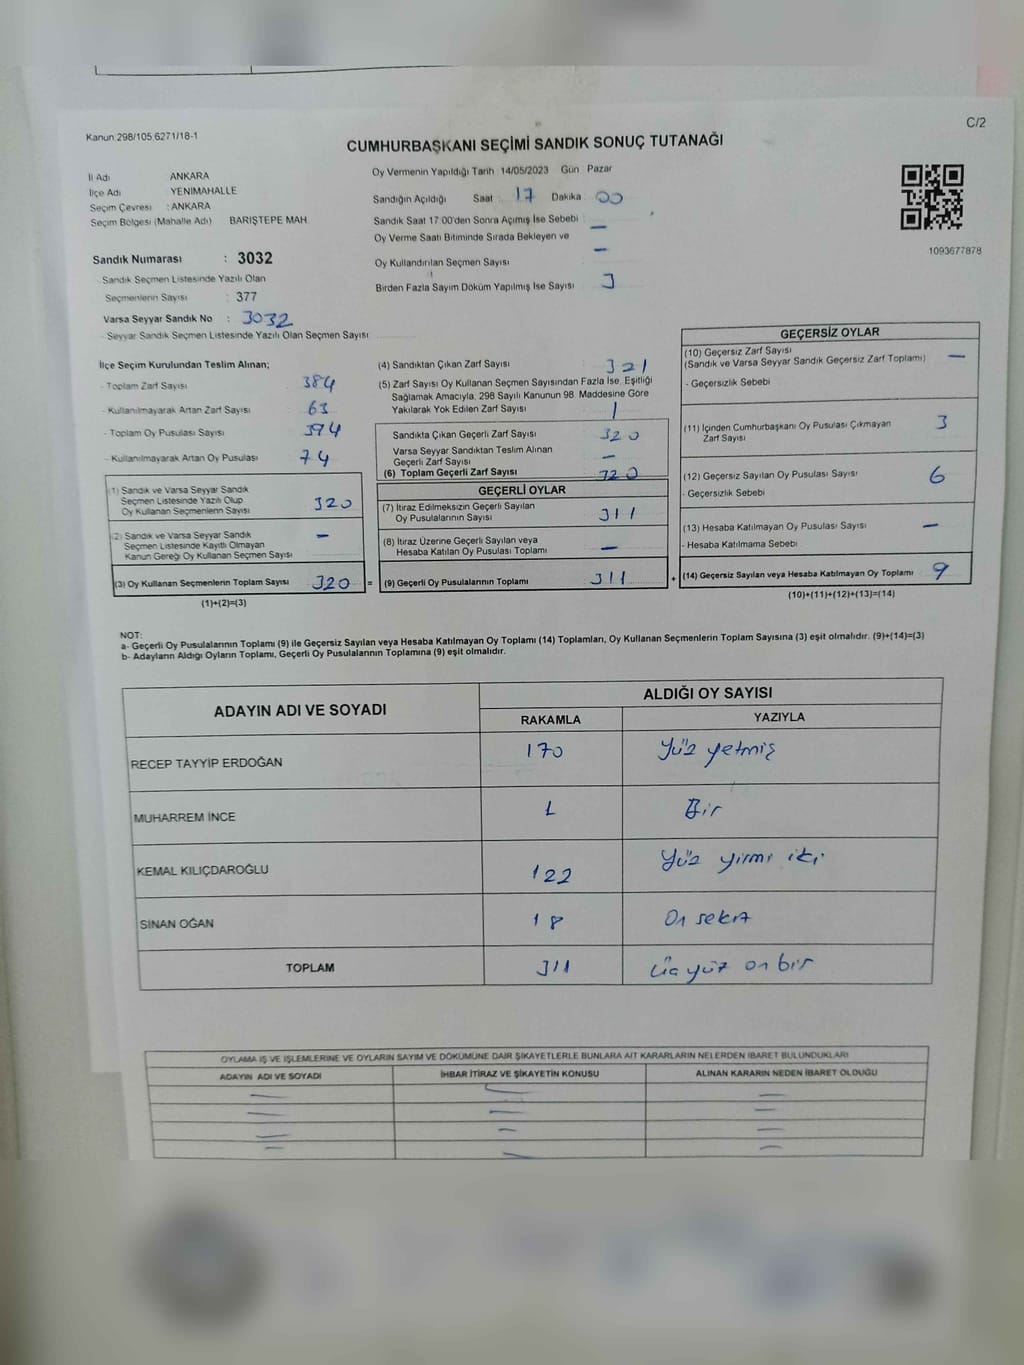 Kanun 298/105,6271/18-1
C/2
CUMHURBAŞKANI SEÇİMİ SANDIK SONUÇ TUTANAĞI
İl Adı ANKARA
İlçe Adı YENİMAHALLE
Seçim Çevresi : ANKARA
Seçim Bölgesi (Mahalle Adı) BARIŞTEPE MAH.
Sandık Numarası : 3032
Sandık Seçmen Listesinde Yazılı Olan
Seçmenlerin Sayısı : 377
Varsa Seyyar Sandık No : 3032
Seyyar Sandık Seçmen Listesinde Yazılı Olan Seçmen Sayısı
Oy Vermenin Yapıldığı Tarih 14/05/2023 Gün Pazar
Sandığın Açıldığı Saat : 17 Dakika 00
Sandık Saat 17.00'den Sonra Açımış İse Sebebi : —
Oy Verme Saati Bitiminde Sırada Bekleyen ve —
Oy Kullandırılan Seçmen Sayısı
Birden Fazla Sayım Döküm Yapılmış İse Sayısı : 3
1093677878
İlçe Seçim Kurulundan Teslim Alınan;
- Toplam Zarf Sayısı : 384
- Kullanılmayarak Artan Zarf Sayısı : 63
- Toplam Oy Pusulası Sayısı : 394
- Kullanılmayarak Artan Oy Pusulası : 74
(1) Sandık ve Varsa Seyyar Sandık
Seçmen Listesinde Yazılı Olup
Oy Kullanan Seçmenlerin Sayısı : 320
(2) Sandık ve Varsa Seyyar Sandık —
Seçmen Listesinde Kayıtlı Olmayan
Kanun Gereği Oy Kullanan Seçmen Sayısı
(3) Oy Kullanan Seçmenlerin Toplam Sayısı 320 =
(1)+(2)=(3)
(4) Sandıktan Çıkan Zarf Sayısı : 321
(5) Zarf Sayısı Oy Kullanan Seçmen Sayısından Fazla İse, Eşitliği
Sağlamak Amacıyla, 298 Sayılı Kanunun 98. Maddesine Göre
Yakılarak Yok Edilen Zarf Sayısı : 1
Sandıkta Çıkan Geçerli Zarf Sayısı : 320
Varsa Seyyar Sandıktan Teslim Alınan
Geçerli Zarf Sayısı : —
(6) Toplam Geçerli Zarf Sayısı : 320
GEÇERLİ OYLAR
(7) İtiraz Edilmeksizin Geçerli Sayılan
Oy Pusulalarının Sayısı : 311
(8) İtiraz Üzerine Geçerli Sayılan veya
Hesaba Katılan Oy Pusulası Toplamı : —
(9) Geçerli Oy Pusulalarının Toplamı : 311 +
GEÇERSİZ OYLAR
(10) Geçersiz Zarf Sayısı
(Sandık ve Varsa Seyyar Sandık Geçersiz Zarf Toplamı) : —
- Geçersizlik Sebebi
(11) İçinden Cumhurbaşkanı Oy Pusulası Çıkmayan : 3
Zarf Sayısı
(12) Geçersiz Sayılan Oy Pusulası Sayısı : 6
- Geçersizlik Sebebi
(13) Hesaba Katılmayan Oy Pusulası Sayısı : —
- Hesaba Katılmama Sebebi
(14) Geçersiz Sayılan veya Hesaba Katılmayan Oy Toplamı : 9
(10)+(11)+(12)+(13)=(14)
NOT:
a- Geçerli Oy Pusulalarının Toplamı (9) ile Geçersiz Sayılan veya Hesaba Katılmayan Oy Toplamı (14) Toplamları, Oy Kullanan Seçmenlerin Toplam Sayısına (3) eşit olmalıdır. (9)+(14)=(3)
b- Adayların Aldığı Oyların Toplamı, Geçerli Oy Pusulalarının Toplamına (9) eşit olmalıdır.
ADAYIN ADI VE SOYADI ALDIĞI OY SAYISI
RAKAMLA YAZIYLA
RECEP TAYYİP ERDOĞAN 170 Yüz yetmiş
MUHARREM İNCE 1 Bir
KEMAL KILIÇDAROĞLU 122 Yüz yirmi iki
SİNAN OĞAN 18 On sekiz
TOPLAM 311 Üçyüz on bir
OYLAMA İŞ VE İŞLEMLERİNE VE OYLARIN SAYIM VE DÖKÜMÜNE DAİR ŞİKAYETLERLE BUNLARA AİT KARARLARIN NELERDEN İBARET BULUNDUKLARI
ADAYIN ADI VE SOYADI İHBAR İTİRAZ VE ŞİKAYETİN KONUSU ALINAN KARARIN NEDEN İBARET OLDUĞU
— — —
— — —
— — —
— — —